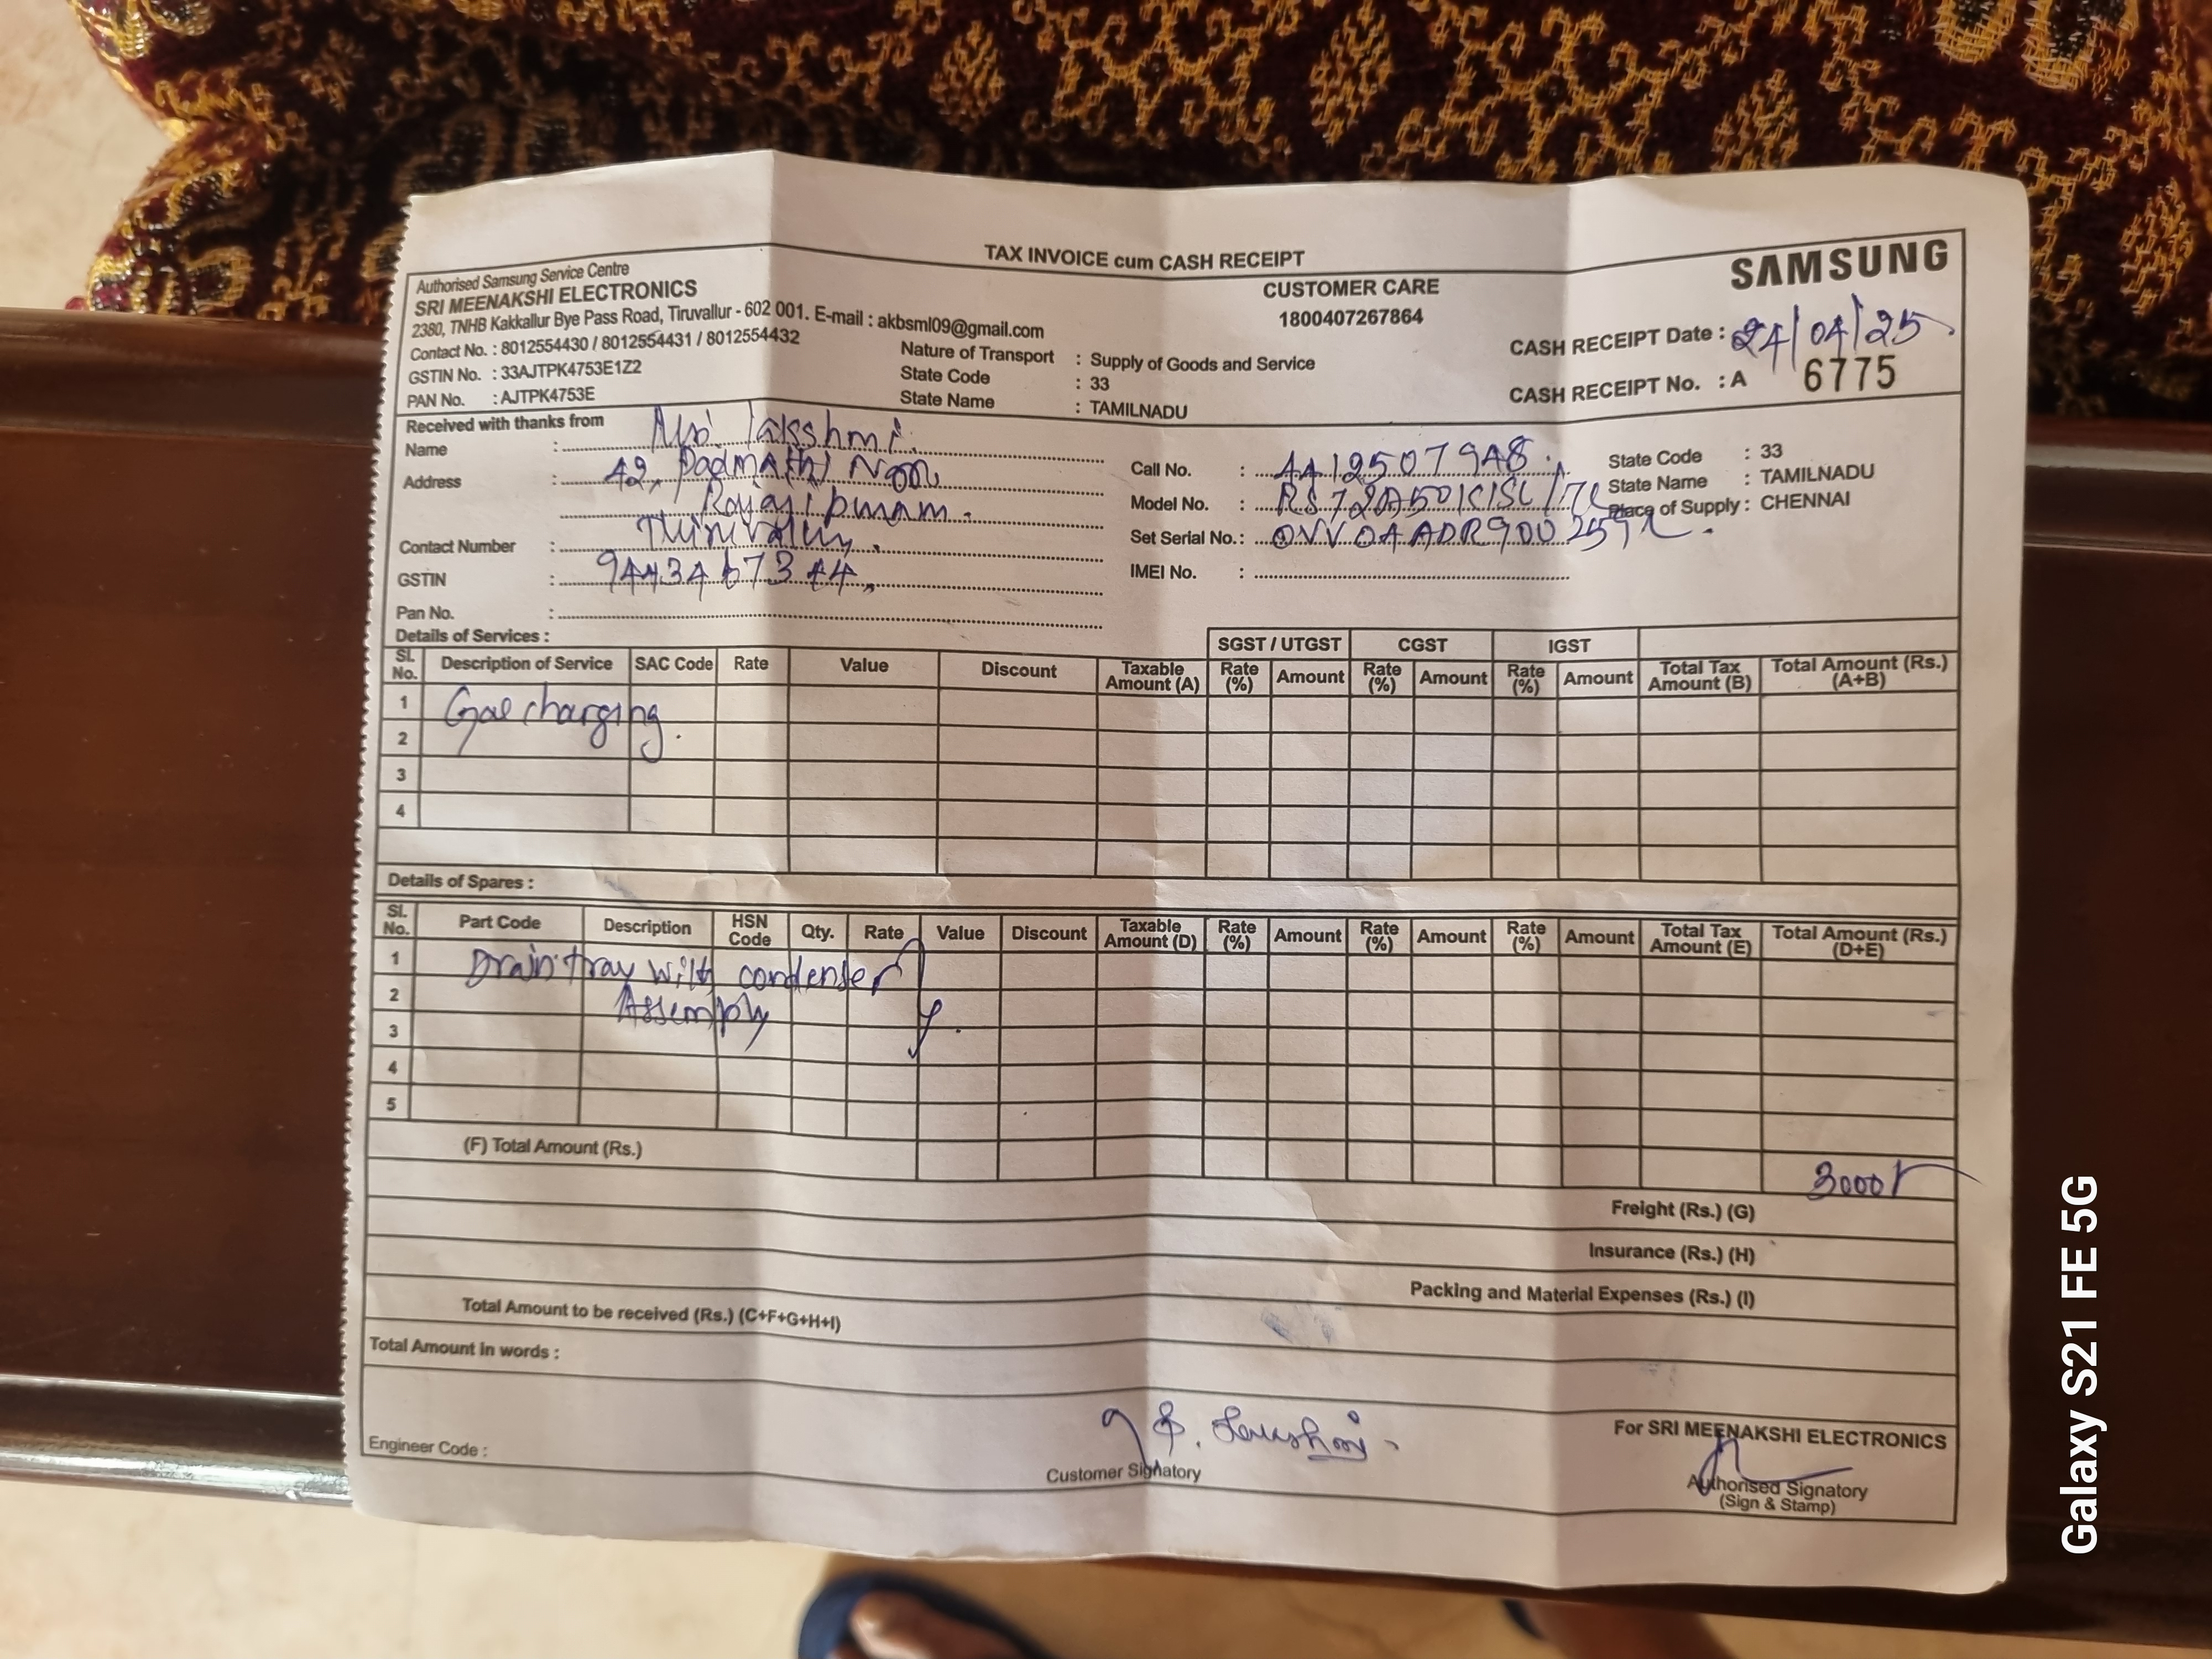 TAX INVOICE cum CASH RECEIPT
Authorised Samsung Service Centre
SRI MEENAKSHI ELECTRONICS
2380, TNHB Kakkallur Bye Pass Road, Tiruvallur - 602 001. E-mail : akbsml09@gmail.com
Contact No. : 8012554430 / 8012554431 / 8012554432
GSTIN No. : 33AJTPK4753E1Z2
PAN No. : AJTPK4753E
Nature of Transport : Supply of Goods and Service
State Code : 33
State Name : TAMILNADU
CUSTOMER CARE
1800407267864
SAMSUNG
CASH RECEIPT Date : 24/04/25
CASH RECEIPT No. : A 6775
Received with thanks from
Name : lakshmi
Address : 42,
Contact Number :
GSTIN : 
Pan No. :
Call No. : 4412507948
Model No. :
Set Serial No. :
IMEI No. :
State Code : 33
State Name : TAMILNADU
Place of Supply : CHENNAI
Details of Services :
SGST / UTGST CGST IGST
Sl. No. Description of Service SAC Code Rate Value Discount Taxable Amount (A) Rate (%) Amount Rate (%) Amount Rate (%) Amount Total Tax Amount (B) Total Amount (Rs.) (A+B)
1 Gas charging.
2
3
4
Details of Spares :
Sl. No. Part Code Description HSN Code Qty. Rate Value Discount Taxable Amount (D) Rate (%) Amount Rate (%) Amount Rate (%) Amount Total Tax Amount (E) Total Amount (Rs.) (D+E)
1 Drain tray with condenser
2 Assemply
3
4
5
(F) Total Amount (Rs.) 3000
Freight (Rs.) (G)
Insurance (Rs.) (H)
Packing and Material Expenses (Rs.) (I)
Total Amount to be received (Rs.) (C+F+G+H+I)
Total Amount in words :
For SRI MEENAKSHI ELECTRONICS
Engineer Code :
Customer Signatory
Authorised Signatory
(Sign & Stamp)
Galaxy S21 FE 5G